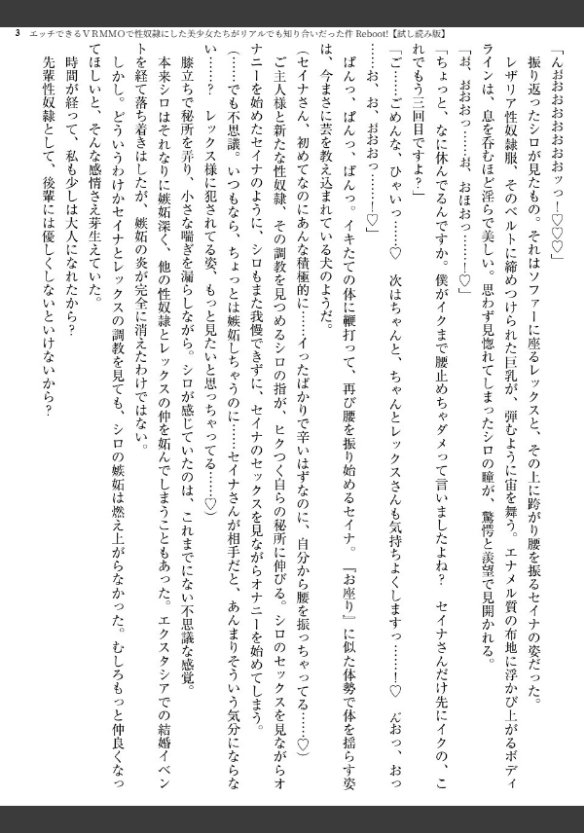 3 エッチできるＶＲＭＭＯで性奴隷にした美少女たちがリアルでも知り合いだった件 Reboot!【試し読み版】
「んぉおおおおおおおッっ！♡♡♡」
振り返ったシロが見たもの。それはソファーに座るレックスと、その上に跨がり腰を振るセイナの姿だった。
レザリア性奴隷服、そのベルトに締めつけられた巨乳が、弾むように宙を舞う。エナメル質の布地に浮かび上がるボディ
ラインは、息を呑むほど淫らで美しい。思わず見惚れてしまったシロの瞳が、驚愕と羨望で見開かれる。
「お、おおおっ……お、おほおっ……！♡」
「ちょっと、なに休んでるんですか。僕がイクまで腰止めちゃダメって言いましたよね？　セイナさんだけ先にイクの、こ
れでもう三回目ですよ？」
「ご……ごめんな、ひゃいっ……♡　次はちゃんと、ちゃんとレックスさんも気持ちよくしますっ……！♡　んおっ、おっ
……お、お、おおおっ……！♡」
ぱんっ、ぱんっ、ぱんっ。イキたての体に鞭打って、再び腰を振り始めるセイナ。『お座り』に似た体勢で体を揺らす姿
は、今まさに芸を教え込まれている犬のようだ。
（セイナさん、初めてなのにあんな積極的に……イったばかりで辛いはずなのに、自分から腰を振っちゃってる……♡）
ご主人様と新たな性奴隷、その調教を見つめるシロの指が、ヒクつく自らの秘所に伸びる。シロのセックスを見ながらオ
ナニーを始めたセイナのように、シロもまた我慢できずに、セイナのセックスを見ながらオナニーを始めてしまう。
（……でも不思議。いつもなら、ちょっとは嫉妬しちゃうのに……セイナさんが相手だと、あんまりそういう気分にならな
い……？　レックス様に犯されてる姿、もっと見たいと思っちゃってる……♡）
膝立ちで秘所を弄り、小さな喘ぎを漏らしながら。シロが感じていたのは、これまでにない不思議な感覚。
本来シロはそれなりに嫉妬深く、他の性奴隷とレックスの仲を妬んでしまうこともあった。エクスタシアでの結婚イベン
トを経て落ち着きはしたが、嫉妬の炎が完全に消えたわけではない。
しかし。どういうわけかセイナとレックスの調教を見ても、シロの嫉妬は燃え上がらなかった。むしろもっと仲良くなっ
てほしいと、そんな感情さえ芽生えていた。
時間が経って、私も少しは大人になれたから？
先輩性奴隷として、後輩には優しくしないといけないから？